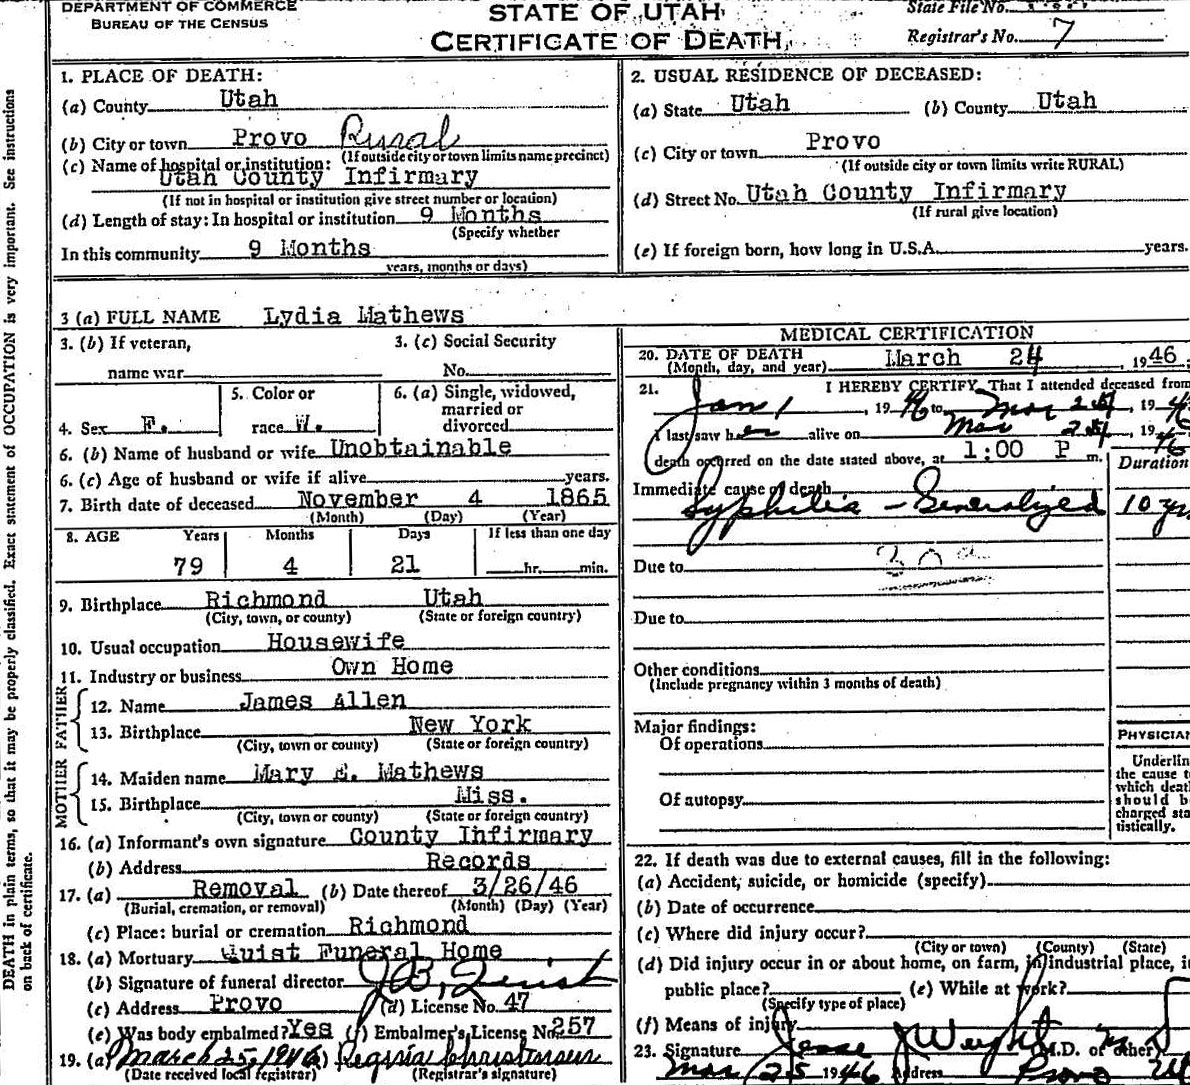 DEPARTMENT OF COMMERCE
BUREAU OF THE CENSUS
STATE OF UTAH
CERTIFICATE OF DEATH
State File No.
Registrar's No. 7
DEATH in plain terms, so that it may be properly classified. Exact statement of OCCUPATION is very important. See instructions
on back of certificate.
1. PLACE OF DEATH:
(a) County Utah
(b) City or town Provo Rural
(If outside city or town limits name precinct)
(c) Name of hospital or institution:
Utah County Infirmary
(If not in hospital or institution give street number or location)
(d) Length of stay: In hospital or institution 9 Months
(Specify whether
In this community 9 Months
years, months or days)
2. USUAL RESIDENCE OF DECEASED:
(a) State Utah (b) County Utah
(c) City or town Provo
(If outside city or town limits write RURAL)
(d) Street No. Utah County Infirmary
(If rural give location)
(e) If foreign born, how long in U.S.A. years.
3 (a) FULL NAME Lydia Mathews
3. (b) If veteran,
name war
3. (c) Social Security
No.
4. Sex F.
5. Color or
race W.
6. (a) Single, widowed,
married or
divorced
6. (b) Name of husband or wife Unobtainable
6. (c) Age of husband or wife if alive years.
7. Birth date of deceased November 4 1865
(Month) (Day) (Year)
8. AGE Years Months Days If less than one day
79 4 21 hr. min.
9. Birthplace Richmond Utah
(City, town, or county) (State or foreign country)
10. Usual occupation Housewife
11. Industry or business Own Home
FATHER
12. Name James Allen
13. Birthplace New York
(City, town or county) (State or foreign country)
MOTHER
14. Maiden name Mary E. Mathews
15. Birthplace Miss.
(City, town or county) (State or foreign country)
16. (a) Informant's own signature County Infirmary
(b) Address Records
17. (a) Removal (b) Date thereof 3/26/46
(Burial, cremation, or removal) (Month) (Day) (Year)
(c) Place: burial or cremation Richmond
18. (a) Mortuary Quist Funeral Home
(b) Signature of funeral director J B, Quist
(c) Address Provo (d) License No. 47
(e) Was body embalmed? Yes (f) Embalmer's License No. 257
19. (a) March 25, 1946 Regina Christensen
(Date received local registrar) (Registrar's signature)
MEDICAL CERTIFICATION
20. DATE OF DEATH March 24, 1946
(Month, day, and year)
21. I HEREBY CERTIFY, That I attended deceased from
Jan 1, 1946 to Mar 24, 1946
I last saw her alive on Mar 24, 1946
death occurred on the date stated above, at 1:00 P m.
Duration
Immediate cause of death
Syphilis - Generalized 10 yrs
Due to
Due to
Other conditions
(Include pregnancy within 3 months of death)
Major findings:
Of operations
Of autopsy
PHYSICIAN
Underlin
the cause t
which deat
should b
charged sta
tistically.
22. If death was due to external causes, fill in the following:
(a) Accident, suicide, or homicide (specify)
(b) Date of occurrence
(c) Where did injury occur?
(City or town) (County) (State)
(d) Did injury occur in or about home, on farm, in industrial place, i
public place? (e) While at work?
(Specify type of place)
(f) Means of injury
23. Signature Jesse J Weight M.D. or other
Mar 25 1946 Address Provo